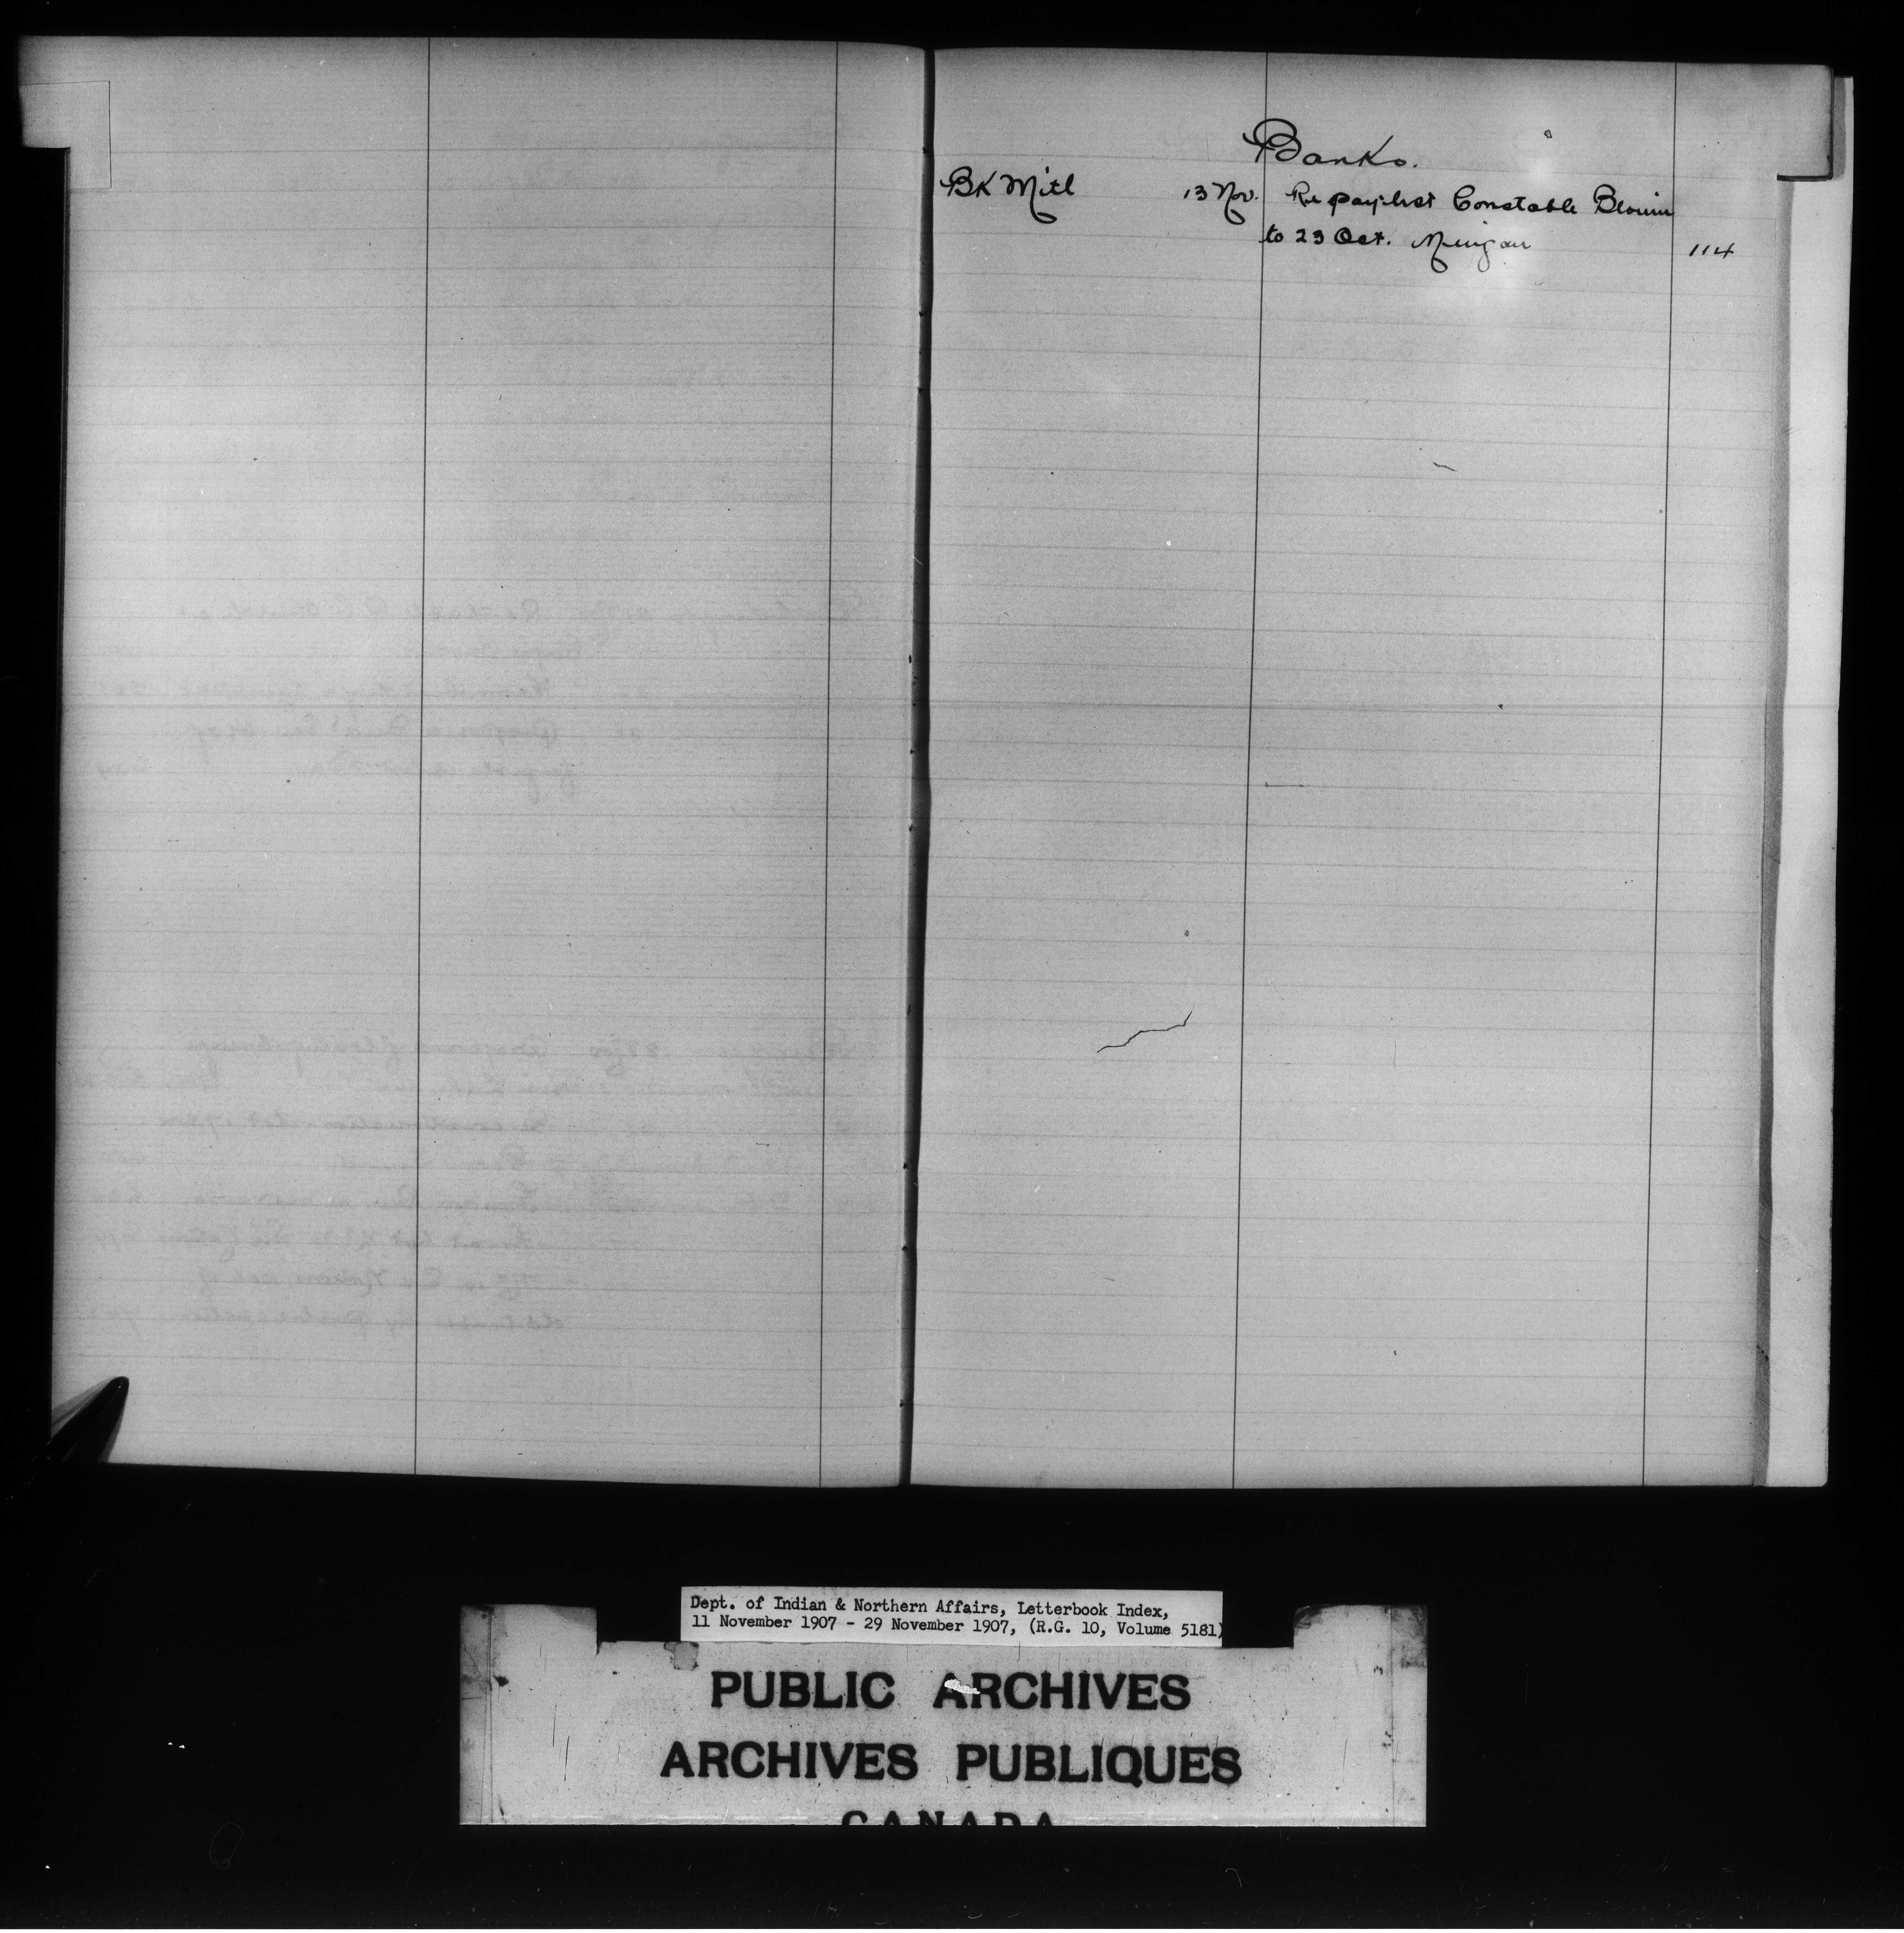 Banks.
BK Mtl 13 Nov. Re paylist Constable Blouin
to 23 Oct. Mingan 114
Dept. of Indian & Northern Affairs, Letterbook Index,
11 November 1907 - 29 November 1907, (R.G. 10, Volume 5181)
PUBLIC ARCHIVES
ARCHIVES PUBLIQUES
CANADA